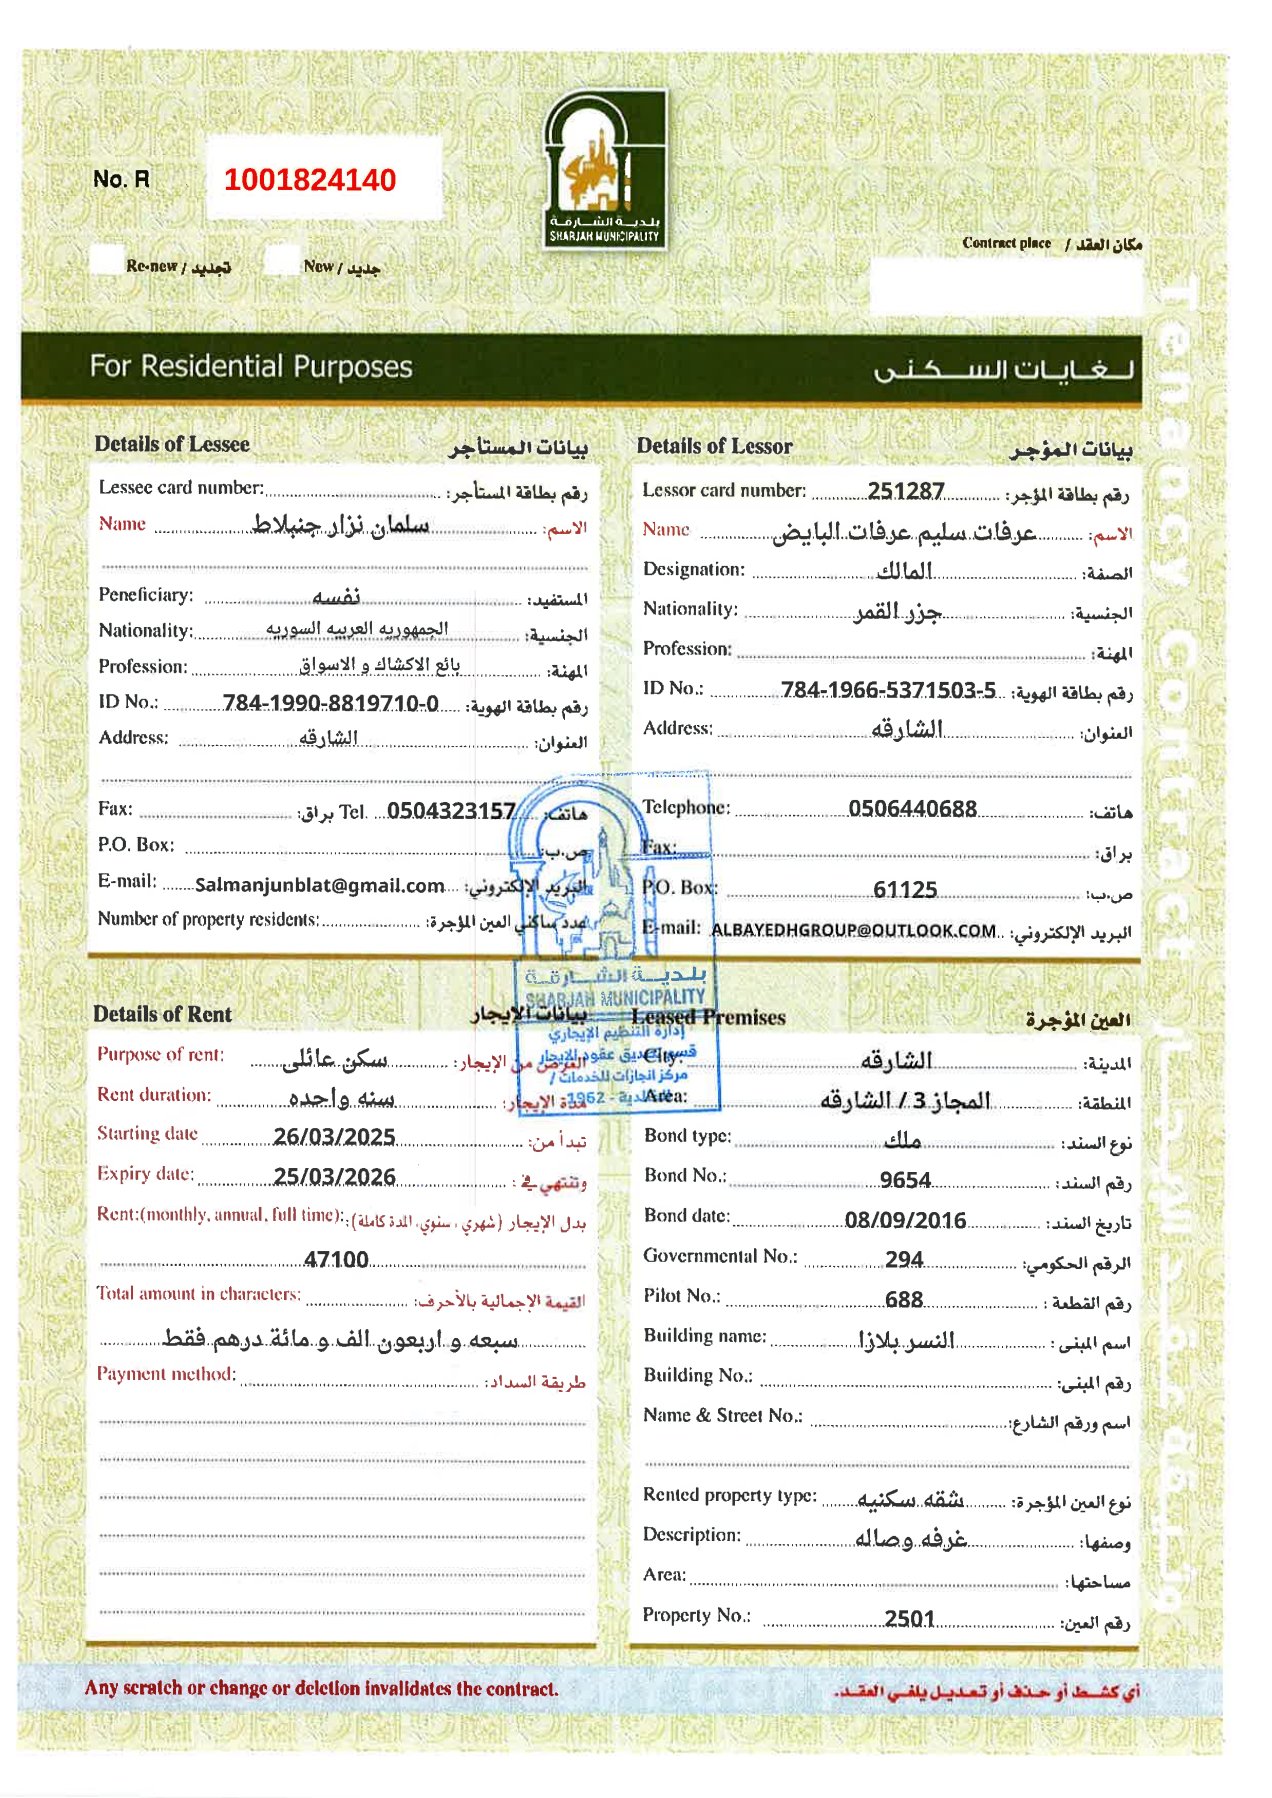 No. R 1001824140
بلدية الشارقة
SHARJAH MUNICIPALITY
Re-new / تجديد New / جديد
Contract place / مكان العقد
For Residential Purposes لغايات السكنى
Tenancy Contract
Details of Lessee بيانات المستأجر
Lessee card number: رقم بطاقة المستأجر:
Name سلمان نزار جنبلاط الاسم:
Peneficiary: نفسه المستفيد:
Nationality: الجمهوريه العربيه السوريه الجنسية:
Profession: بائع الاكشاك و الاسواق المهنة:
ID No.: 784-1990-8819710-0 رقم بطاقة الهوية:
Address: الشارقه العنوان:
Fax: براق: Tel. 0504323157 هاتف:
P.O. Box: ص.ب:
E-mail: Salmanjunblat@gmail.com البريد الإلكتروني:
Number of property residents: عدد ساكني العين المؤجرة:
Details of Lessor بيانات المؤجر
Lessor card number: 251287 رقم بطاقة المؤجر:
Name عرفات سليم عرفات البايض الاسم:
Designation: المالك الصفة:
Nationality: جزر القمر الجنسية:
Profession: المهنة:
ID No.: 784-1966-5371503-5 رقم بطاقة الهوية:
Address: الشارقه العنوان:
Telephone: 0506440688 هاتف:
Fax: براق:
P.O. Box: 61125 ص.ب:
E-mail: ALBAYEDHGROUP@OUTLOOK.COM البريد الإلكتروني:
بلدية الشارقة
SHARJAH MUNICIPALITY
إدارة التنظيم الإيجاري
قسم تصديق عقود الايجار
مركز انجازات للخدمات /
1962 -
Details of Rent بيانات الإيجار
Purpose of rent: سكن عائلى الغرض من الإيجار:
Rent duration: سنه واحده مدة الإيجار:
Starting date 26/03/2025 تبدأ من:
Expiry date: 25/03/2026 وتنتهي في:
Rent:(monthly, annual, full time): بدل الإيجار (شهري، سنوي، المدة كاملة):
47100
Total amount in characters: القيمة الإجمالية بالأحرف:
سبعه و اربعون الف و مائة درهم فقط
Payment method: طريقة السداد:
Leased Premises العين المؤجرة
City: الشارقه المدينة:
Area: المجاز 3 / الشارقه المنطقة:
Bond type: ملك نوع السند:
Bond No.: 9654 رقم السند:
Bond date: 08/09/2016 تاريخ السند:
Governmental No.: 294 الرقم الحكومي:
Pilot No.: 688 رقم القطعة :
Building name: النسر بلازا اسم المبنى :
Building No.: رقم المبنى:
Name & Street No.: اسم ورقم الشارع:
Rented property type: شقه سكنيه نوع العين المؤجرة:
Description: غرفه وصاله وصفها:
Area: مساحتها:
Property No.: 2501 رقم العين:
Any scratch or change or deletion invalidates the contract. أي كشط أو حذف أو تعديل يلغي العقد.